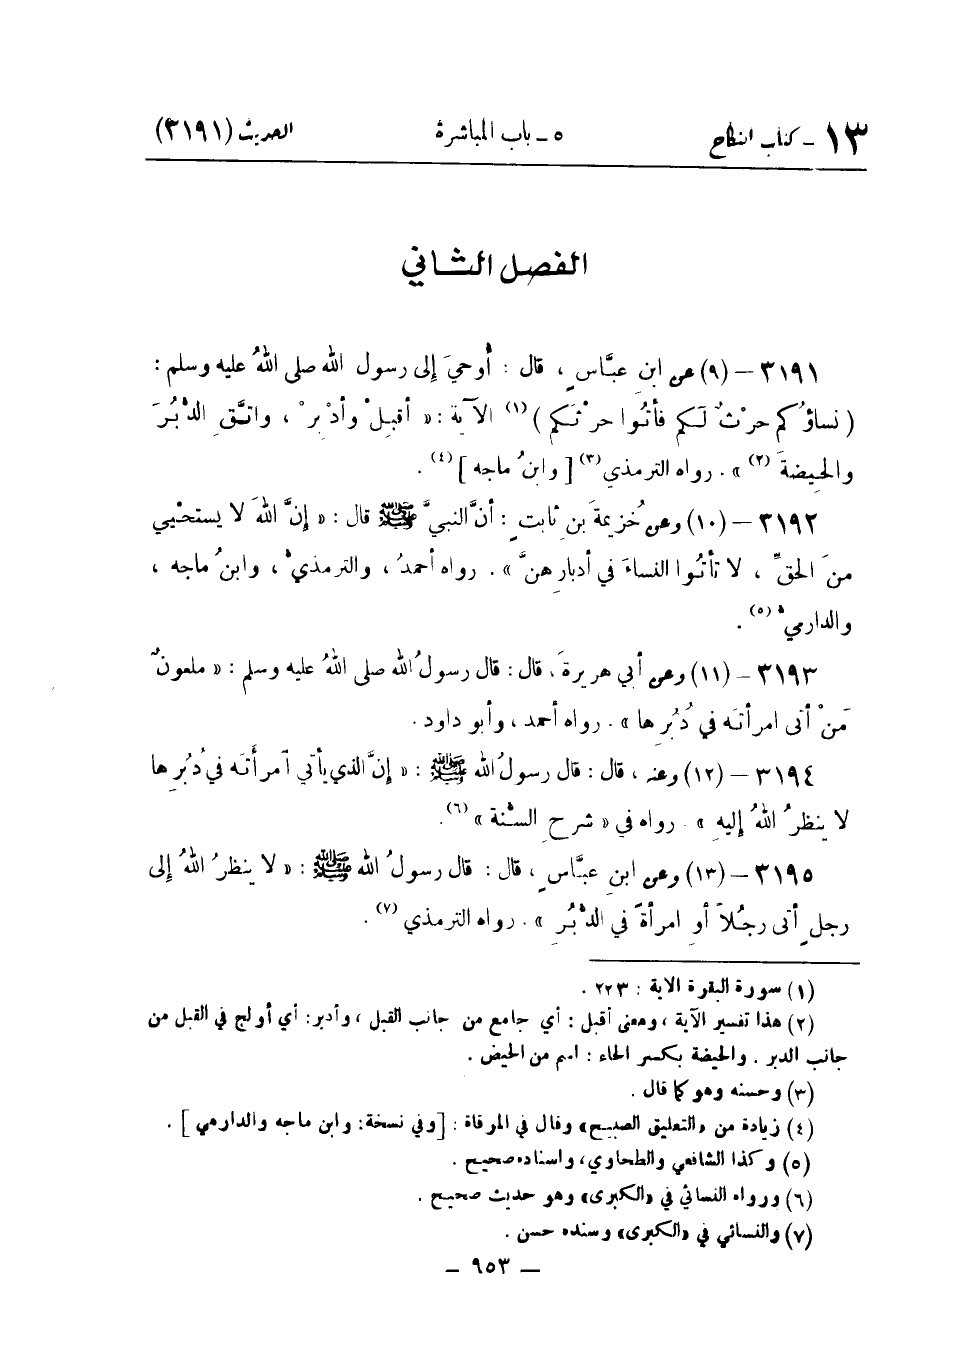 ١٣ - كتاب النكاح ٥ - باب المباشرة الحديث (٣١٩١)
الفصل الثاني
٣١٩١ - (٩) عن ابن عبَّاسٍ ، قال : أُوحيَ إلى رسول الله صلى اللهُ عليه وسلم :
( نساؤُكم حرْثٌ لَكم فأتُوا حرْثَكم )(١) الآيةَ : « أقبِلْ وأدْبِرْ ، واتَّقِ الدُّبُرَ
والحِيضةَ (٢) » . رواه الترمذي(٣) [ وابنُ ماجه ](٤) .
٣١٩٢ - (١٠) وعن خُزيمةَ بنِ ثابتٍ : أنَّ النبيَّ ﷺ قال : « إنَّ اللهَ لا يستحْيي
منَ الحقِّ ، لا تأتُوا النساءَ في أدبارِهنَّ » . رواه أحمدُ ، والترمذيُّ ، وابنُ ماجه ،
والدارميُّ (٥) .
٣١٩٣ - (١١) وعن أبي هريرةَ ، قال : قال رسولُ الله صلى اللهُ عليه وسلم : « ملعونٌ
مَنْ أتى امرأتَه في دُبُرِها » . رواه أحمد ، وأبو داود .
٣١٩٤ - (١٢) وعنه ، قال : قال رسولُ الله ﷺ : « إنَّ الذي يأتي امرأتَه في دُبُرِها
لا ينظرُ اللهُ إليهِ » . رواه في « شرحِ السُّنة » (٦) .
٣١٩٥ - (١٣) وعن ابنِ عبَّاسٍ ، قال : قال رسولُ الله ﷺ : « لا ينظرُ اللهُ إلى
رجلٍ أتى رجُلاً أوِ امرأةً في الدُّبُرِ » . رواه الترمذي (٧) .
(١) سورة البقرة الاية : ٢٢٣ .
(٢) هذا تفسير الآية ، ومعنى أقبل : أي جامع من جانب القبل ، وأدبر : أي أولج في القبل من
جانب الدبر . والحيضة بكسر الحاء : اسم من الحيض .
(٣) وحسنه وهو كما قال .
(٤) زيادة من «التعليق الصبيح» وقال في المرقاة : [وفي نسخة: وابن ماجه والدارمي ] .
(٥) وكذا الشافعي والطحاوي، واسناده صحيح .
(٦) ورواه النسائي في «الكبرى» وهو حديث صحيح .
(٧) والنسائي في «الكبرى» وسنده حسن .
— ٩٥٣ —